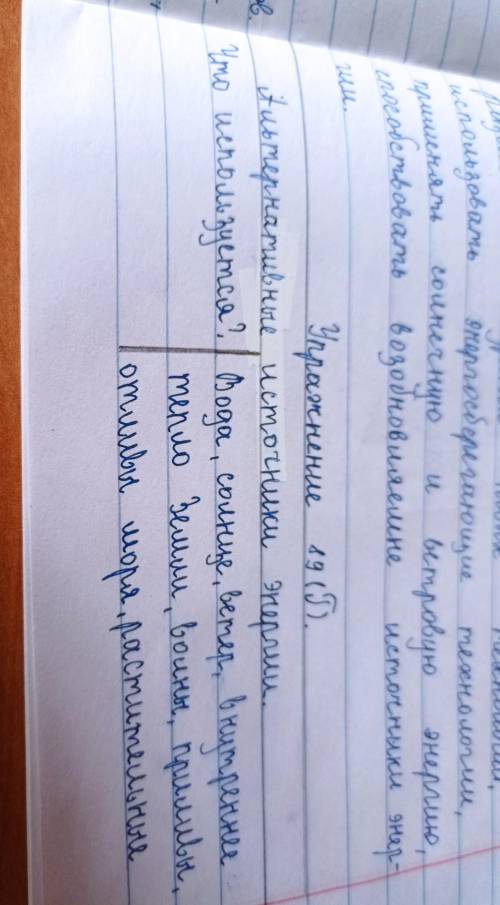 использовать энергосберегающие технологии,
применять солнечную и ветровую энергию,
способствовать возобновляемие источники энер-
гии.
Упражнение 19(Б).
Альтернативные источники энергии.
Что используется? Вода, солнце, ветер, внутреннее
тепло Земли, волны, приливы,
отливы моря, растительные